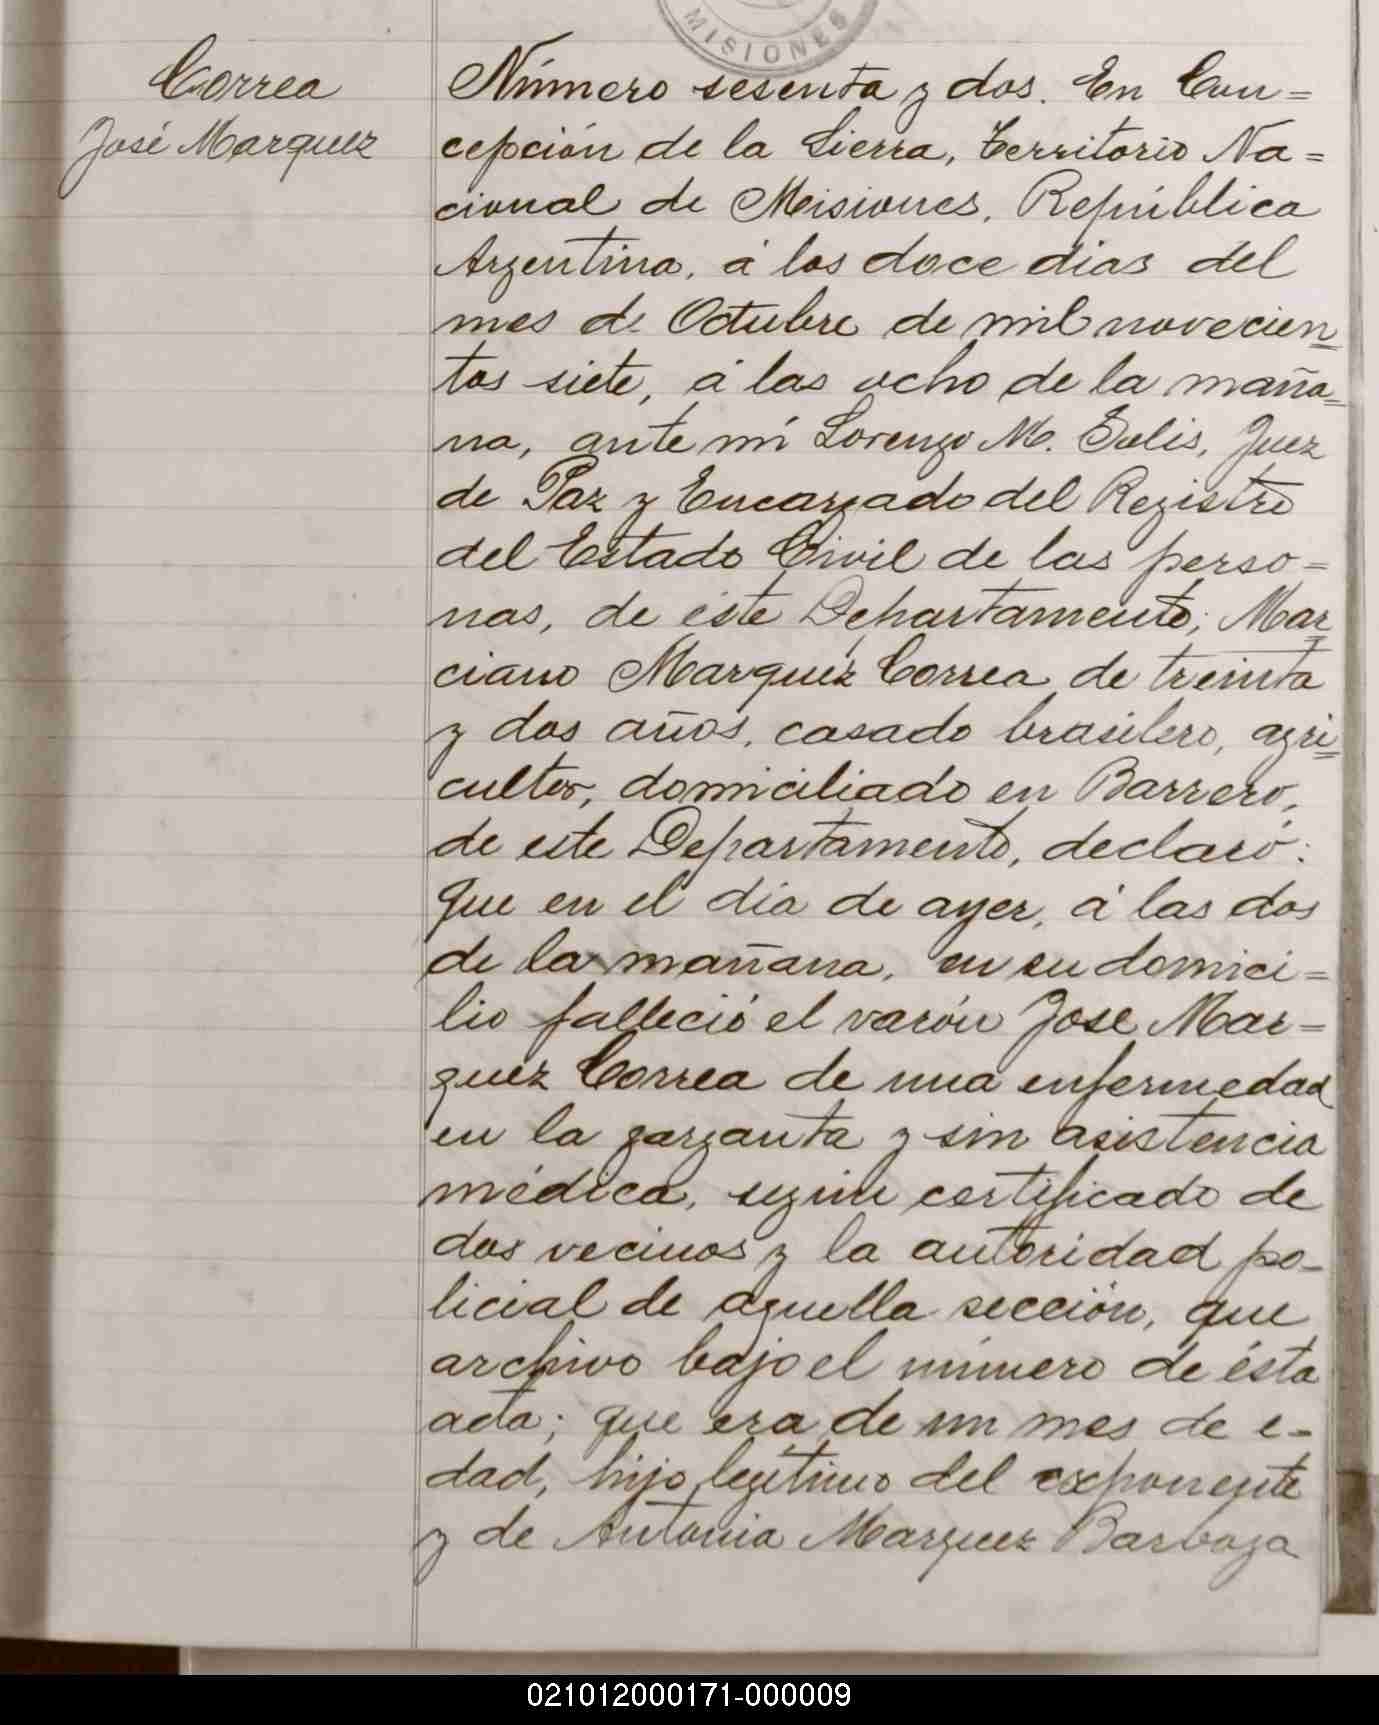 MISIONES
Correa
José Marquez
Número sesenta y dos. En Con=
cepción de la Sierra, Territorio Na=
cional de Misiones, República
Argentina, á los doce dias del
mes de Octubre de mil novecien=
tos siete, á las ocho de la maña=
na, ante mí Lorenzo M. Solis, Juez
de Paz y Encargado del Registro
del Estado Civil de las perso=
nas, de éste Departamento; Mar=
ciano Marquez Correa de treinta
y dos años, casado brasilero, agri=
cultor, domiciliado en Barrero,
de este Departamento, declaró:
Que en el día de ayer, á las dos
de la mañana, en su domici=
lio falleció el varón José Mar=
quez Correa de una enfermedad
en la garganta y sin asistencia
médica, según certificado de
dos vecinos y la autoridad po-
licial de aquella sección, que
archivo bajo el número de ésta
acta; que era de un mes de e-
dad, hijo legítimo del exponente
y de Antonia Marquez Barboza
021012000171-000009